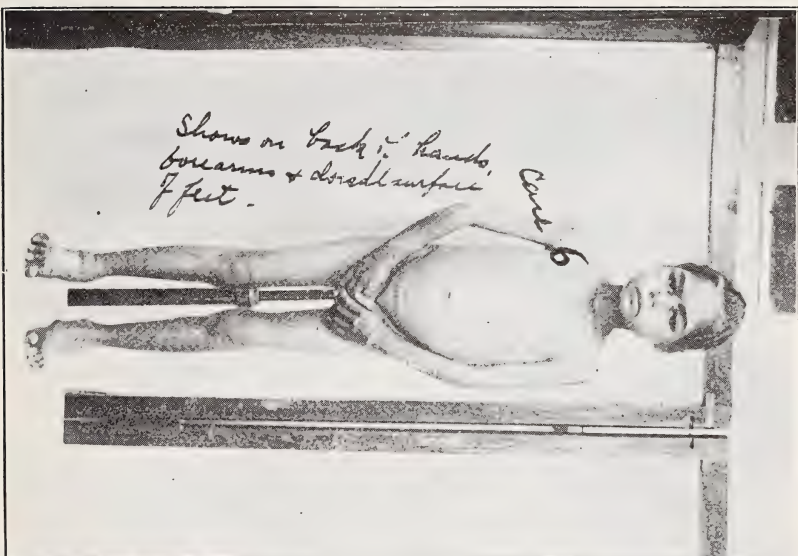 Shows on back of hands,
forearms & dorsal surface
of feet.
Case 6